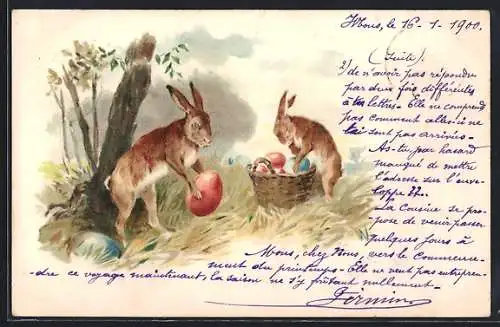 Mons, le 16 - 1 - 1900.
(Suite).
2/ de n'avoir pas répondu
par deux fois différentes
à tes lettres. - Elle ne comprend
pas comment celles-ci ne
lui sont pas arrivées -
As-tu par hasard
manqué de mettre
l'adresse sur l'enve-
loppe ??.. -
La Cousine se pro-
pose de venir passer
quelques jours à
Mons, chez Nous, vers le Commence-
ment du printemps - Elle ne veut pas entrepren-
dre ce voyage maintenant, la saison ne s'y prêtant nullement -
Germain